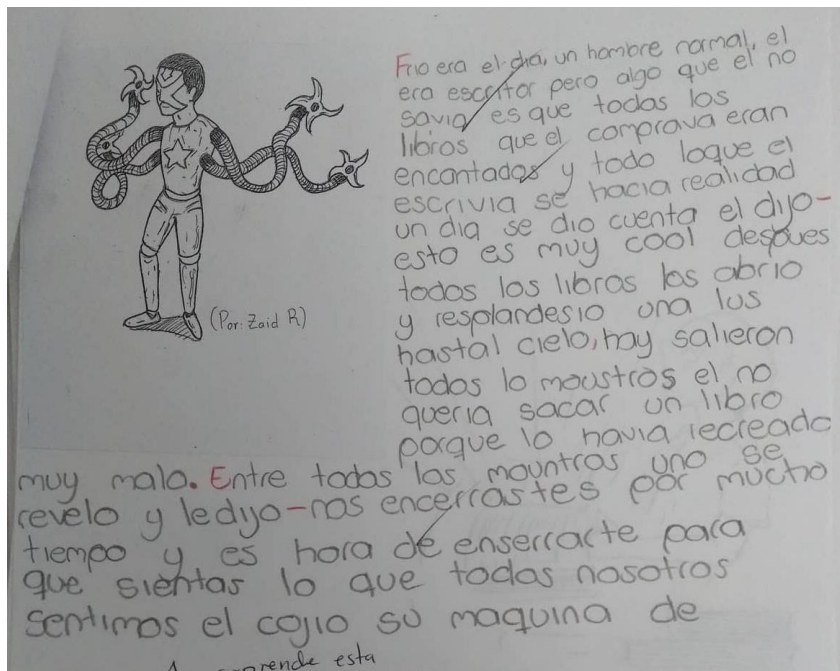 (Por: Zaid R)
Frio era el dia, un hombre normal, el
era escritor pero algo que el no
savia es que todos los
libros que el comprava eran
encantados y todo loque el
escrivia se hacia realidad
un dia se dio cuenta el dijo-
esto es muy cool despues
todos los libros los abrio
y resplandesio una lus
hastal cielo, hay salieron
todos lo moustros el no
queria sacar un libro
porque lo havia recreado
muy malo. Entre todos los mountros uno se
revelo y ledijo-nos encerrastes por mucho
tiempo y es hora de enserrarte para
que sientas lo que todos nosotros
sentimos el cojio su maquina de
esta